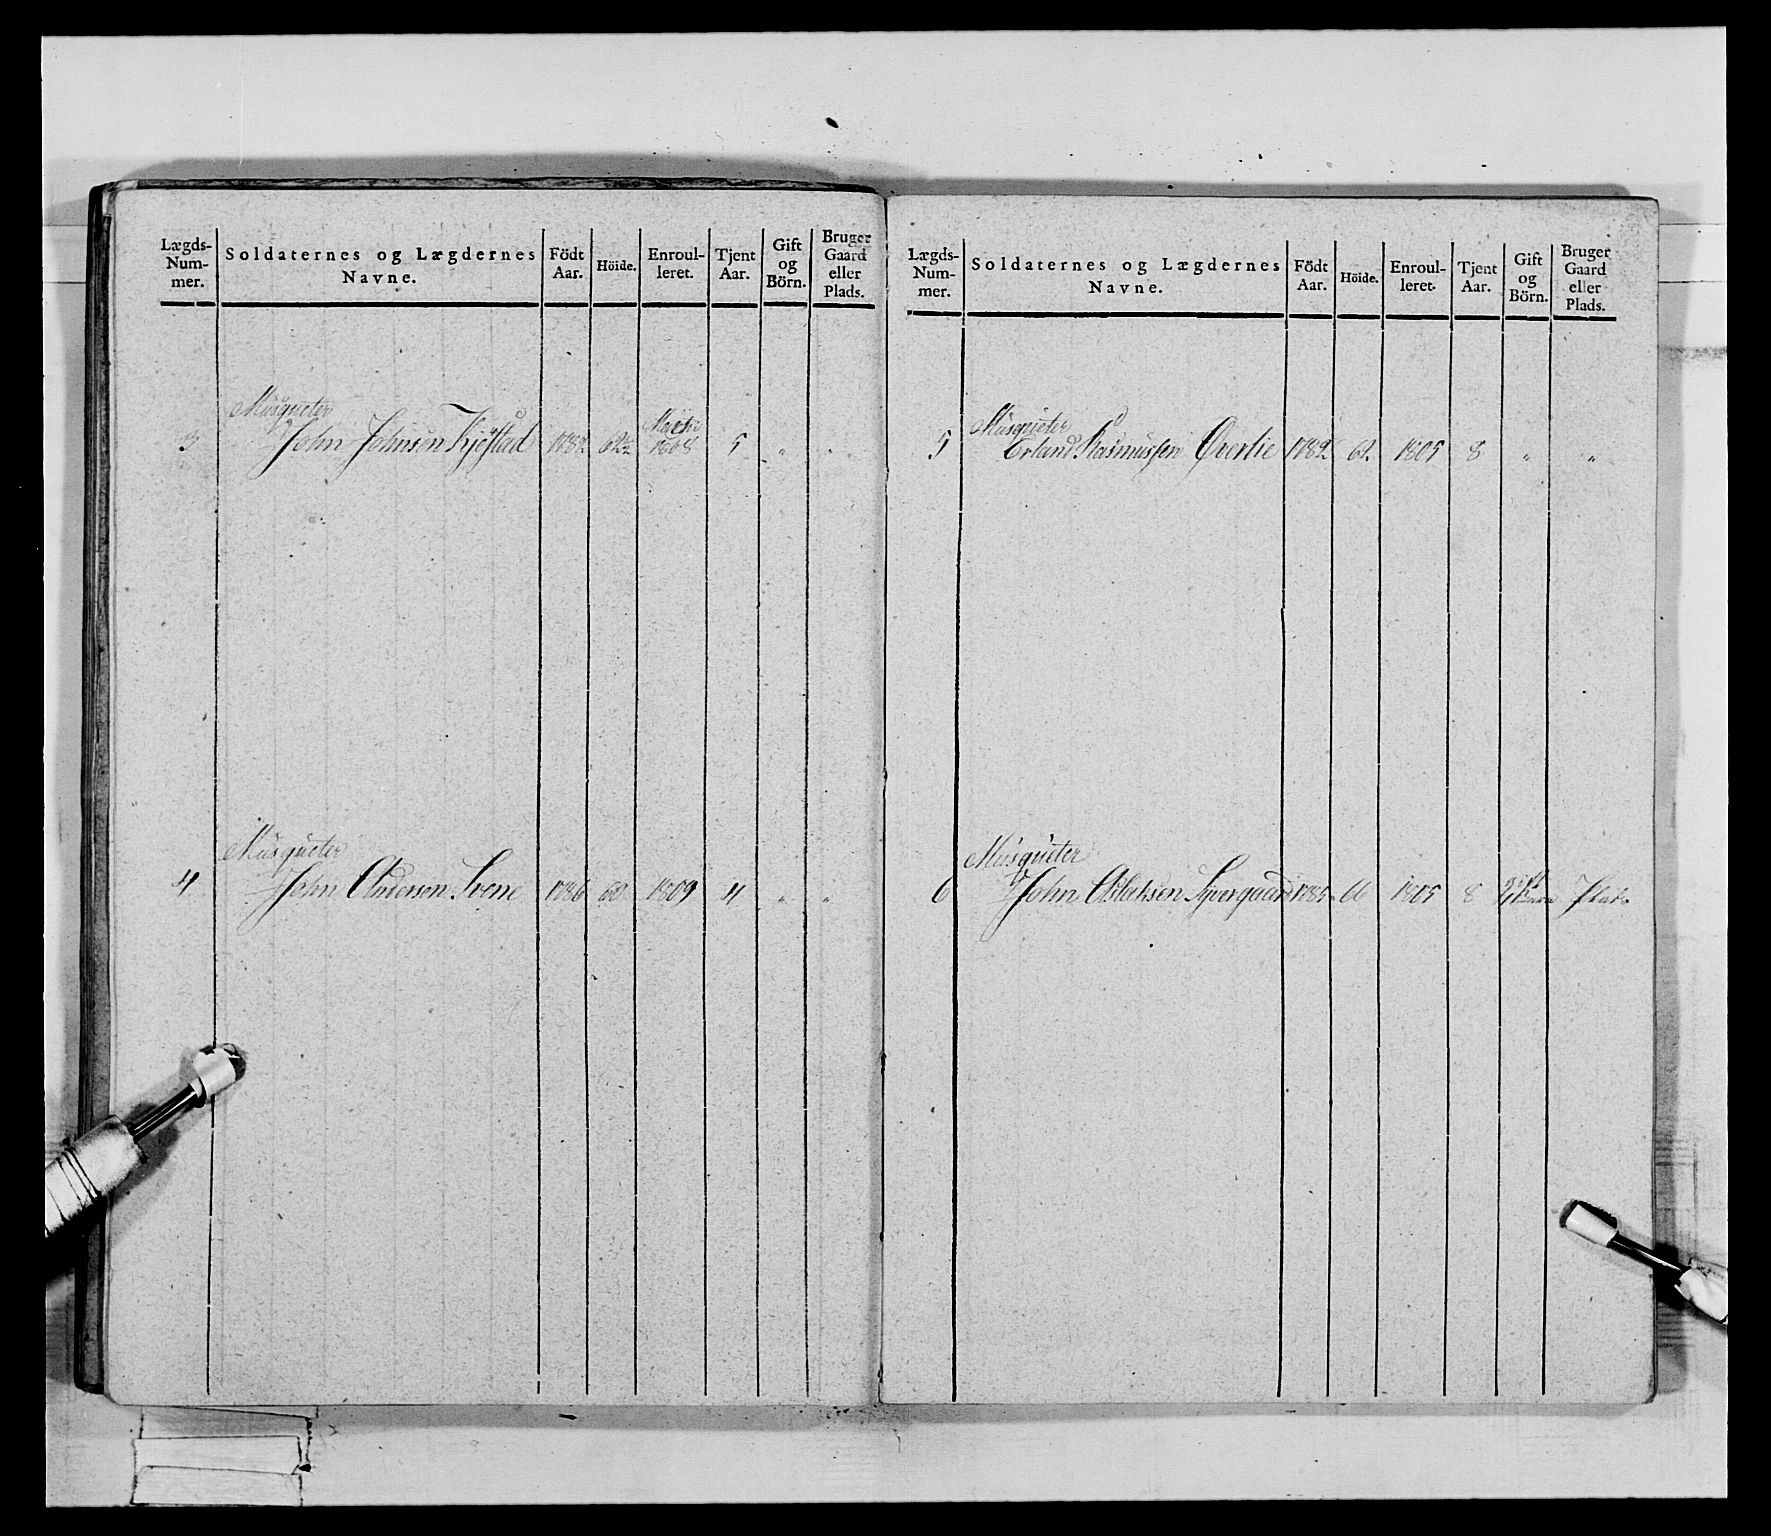 Lægds-Num-mer. Soldaternes og Lægdernes Navne. Födt Aar. Höide. Enroul-leret. Tjent Aar. Gift og Börn. Bruger Gaard eller Plads.
Musqueter
3 John Johnsen Kjøstad 1782 62½ Marts 1808 5 " "
Musqueter
4 John Andersen Svene 1786 60 1809 4 " "
Lægds-Num-mer. Soldaternes og Lægdernes Navne. Födt Aar. Höide. Enroul-leret. Tjent Aar. Gift og Börn. Bruger Gaard eller Plads.
Musqueter
5 Erland Rasmussen Øverlie 1782 62 1805 8 " "
Musqueter
6 John Aslaksen 1785 66 1805 8 gift Plads